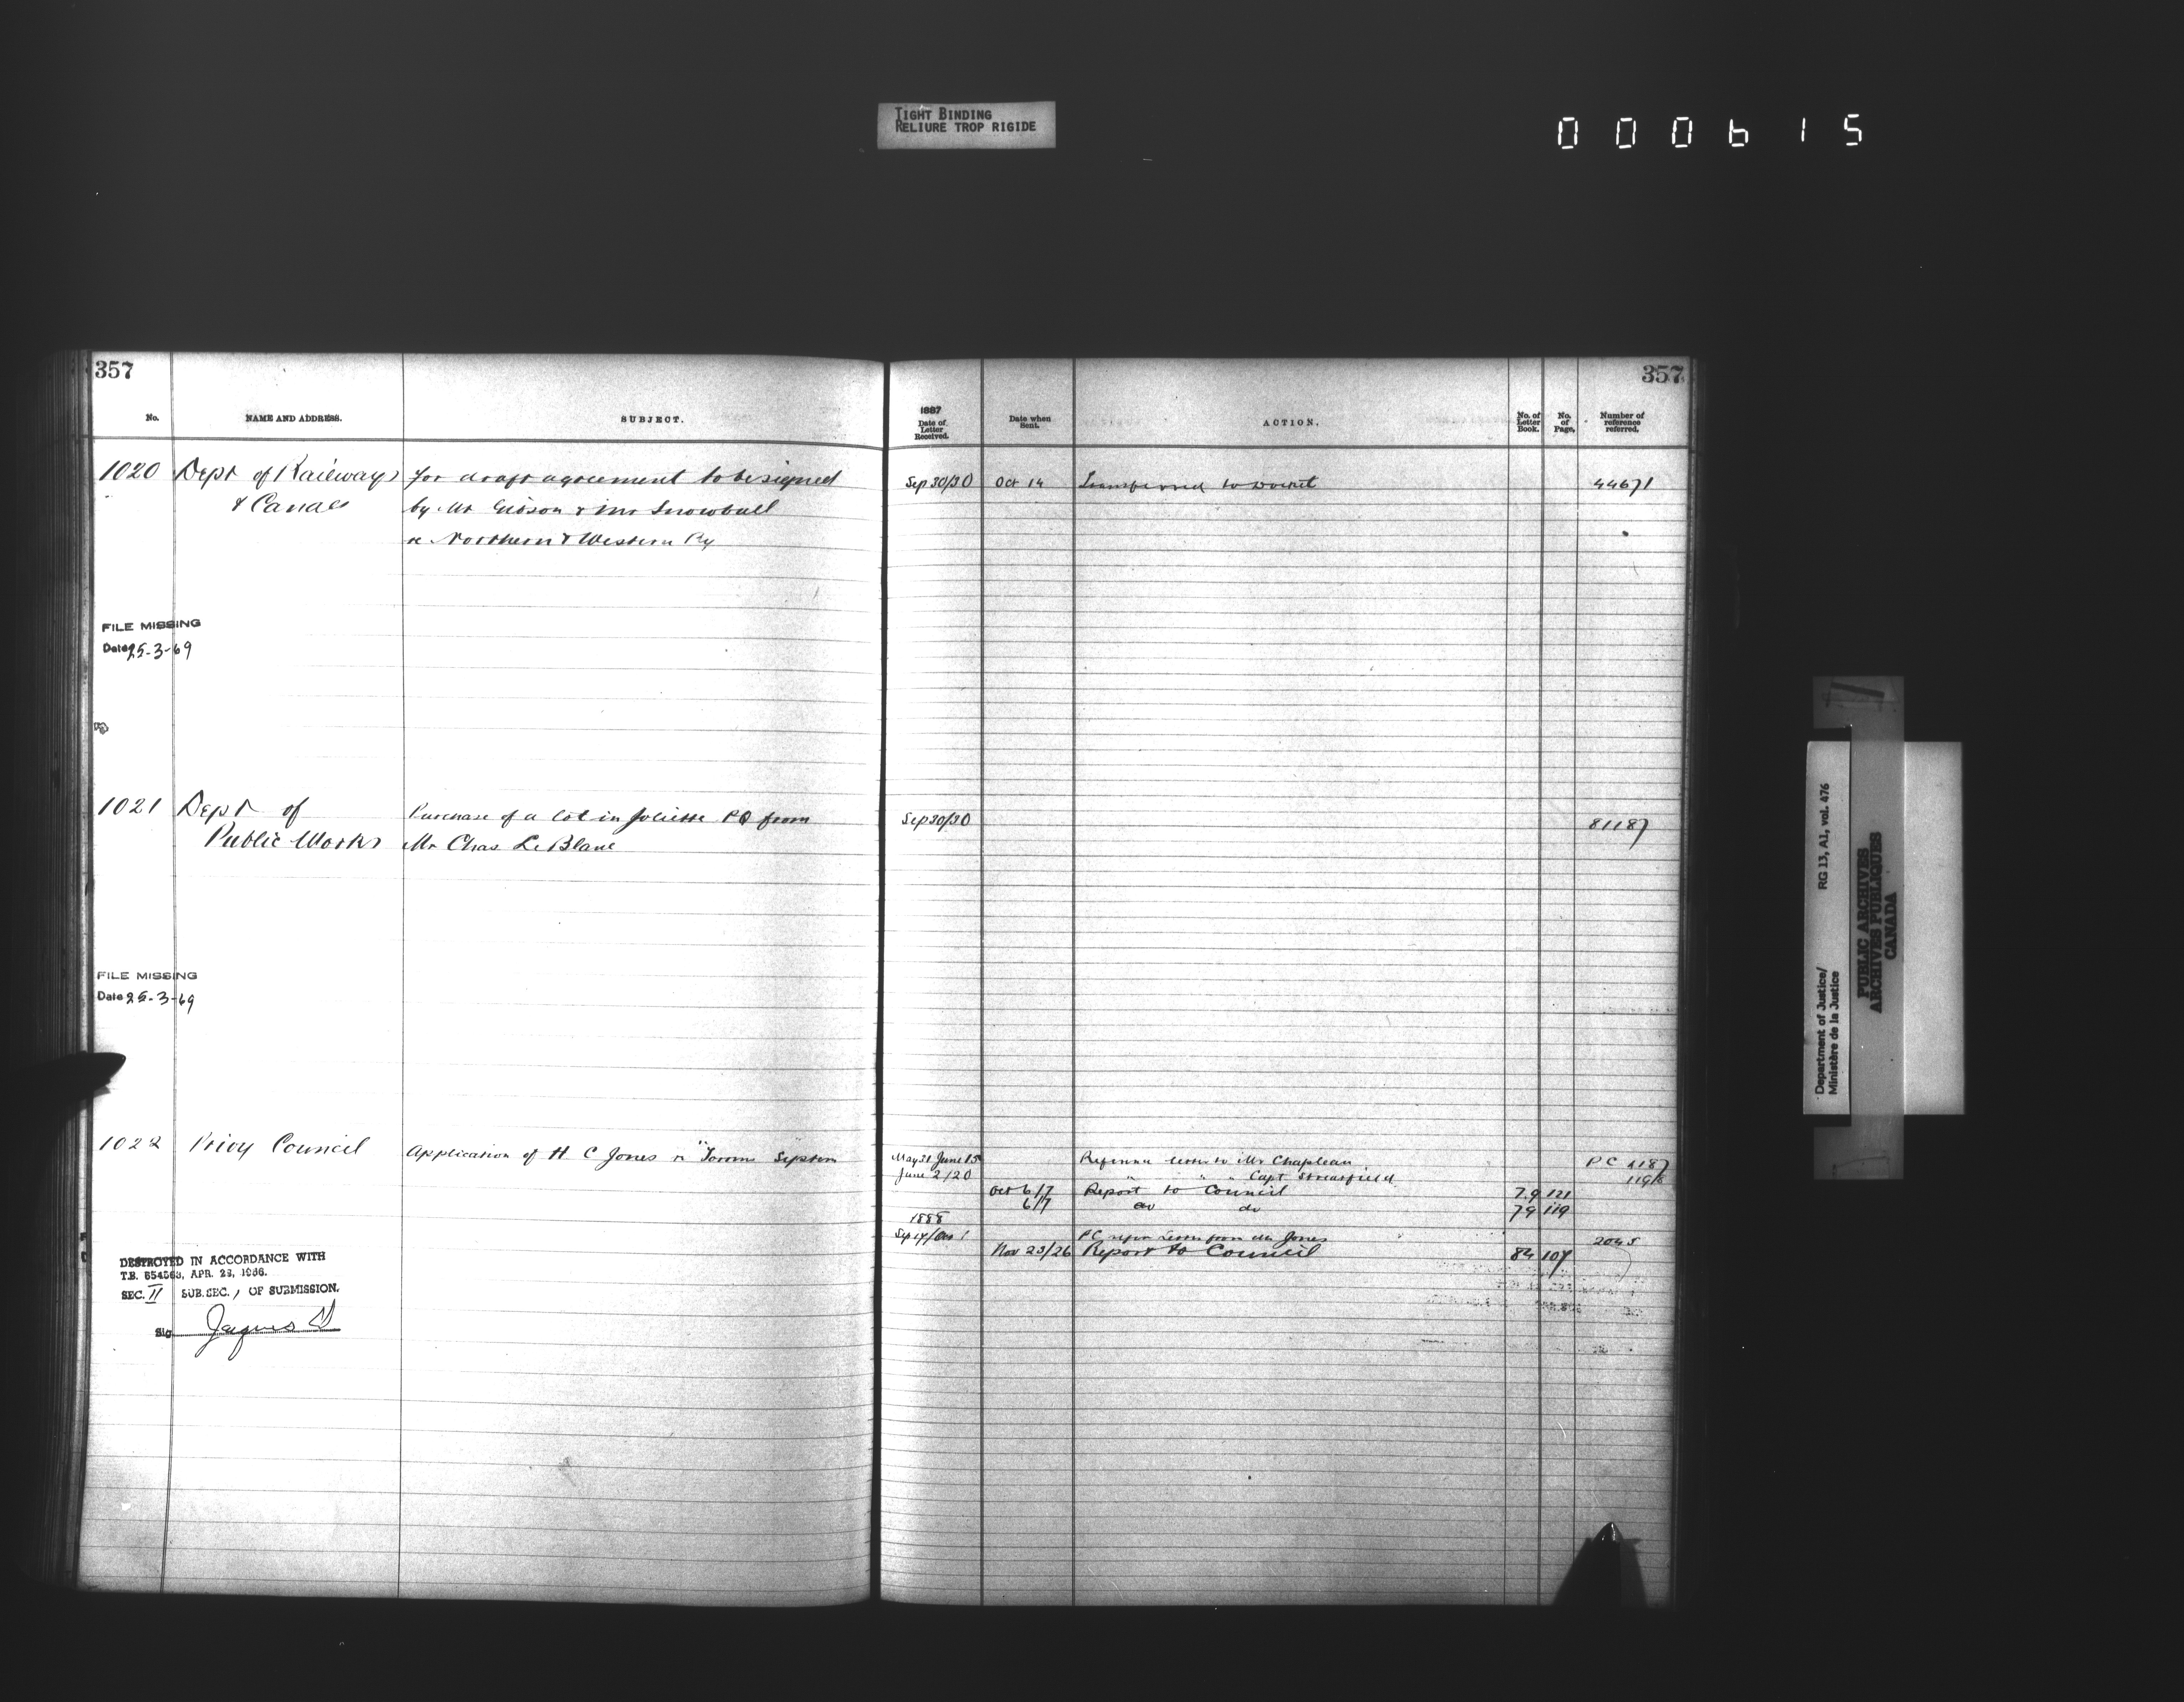 TIGHT BINDING
RELIURE TROP RIGIDE
000615
357
No.
NAME AND ADDRESS.
SUBJECT.
1020 Dept of Railways for draft agreement to be signed
& Canals by Mr Gibson & Mr Snowball
re Northern & Western Ry
FILE MISSING
Date 25-3-69
1021 Dept of Purchase of a lot in Joliette PQ from
Public Works Mr Chas LeBlanc
FILE MISSING
Date 25-3-69
1022 Privy Council Application of H. C Jones re
DESTROYED IN ACCORDANCE WITH
T.B. 654563, APR. 29, 1966.
SEC. II SUB.SEC. 1 OF SUBMISSION.
Sig. Jaques
357
1887
Date of
Letter
Received.
Date when
Sent.
ACTION.
No. of
Letter
Book.
No.
of
Page.
Number of
reference
referred.
Sep 30/30 Oct 14 Transferred to Docket 44671
Sep 30/30 81187
May 31 June 15 letter to Mr Chapleau PC 1187
June 2/20 " " " Capt Streatfield
Oct 6/7 Report to Council 79 121
6/7 do do 79 119
1888
Sep 14/Oct 1 PC letter from Mr Jones 2045
Nov 23/26 Report to Council 84 107
Department of Justice/ RG 13, A1, vol. 476
Ministère de la Justice
PUBLIC ARCHIVES
ARCHIVES PUBLIQUES
CANADA